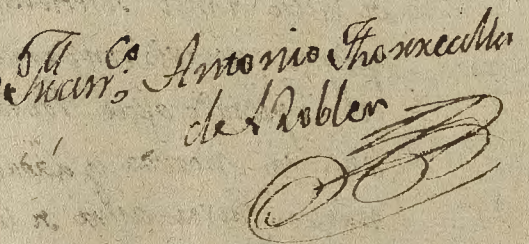 Fran.co Antonio Thorrealla
de Robles